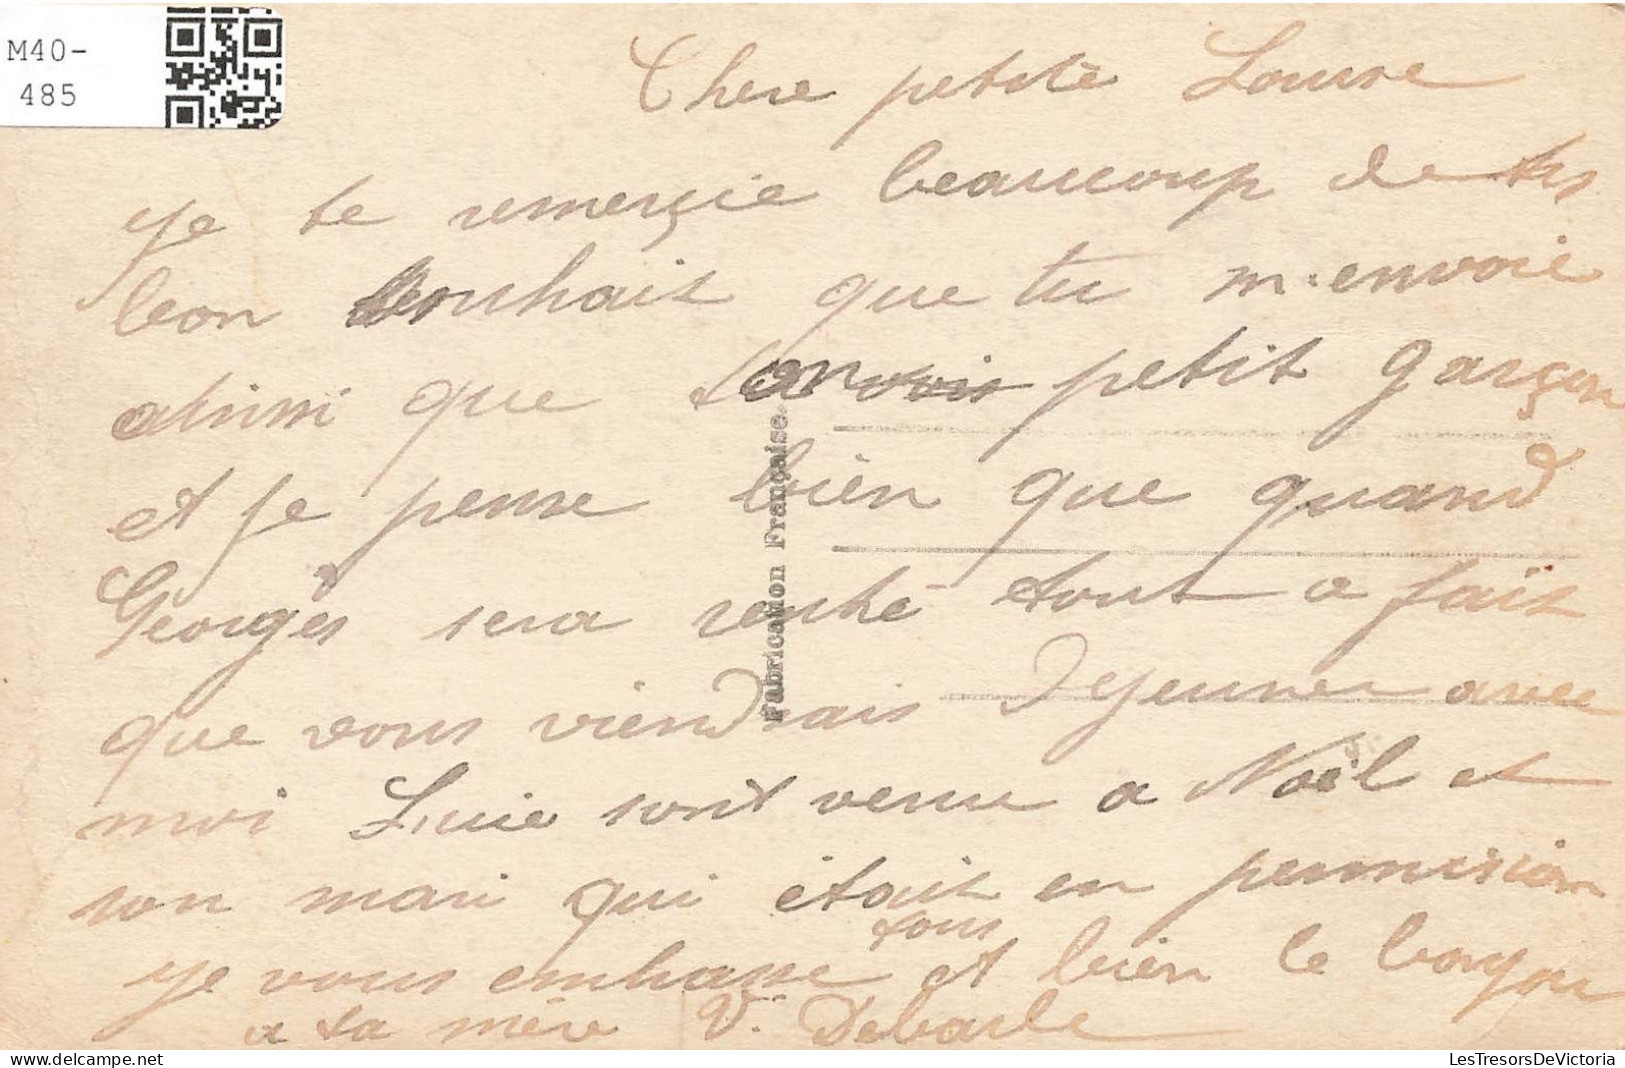 M40-
485
Chere petite Louise
Je te remerçie beaucoup de tes
bon souhait que tu m'envoie
ainsi que ton petit garçon
et je pense bien que quand
Georges sera rentré tout a fait
que vous viendrais Dejeuner avec
moi Lucie sont venu a Noël et
son mari qui était en permision
je vous embrasse tous et bien le bonjour
a ta mère V. Debarle
Fabrication Française.
LesTresorsDeVictoria